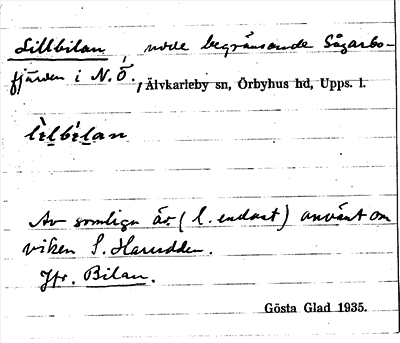 Lillbilan, udde begränsande Sågarbo-
fjärden i N.Ö., Älvkarleby sn, Örbyhus hd, Upps. l.
lìlbílan
Av somliga är (l. endast) använt om
viken S. Harudden.
Jfr. Bilan.
Gösta Glad 1935.